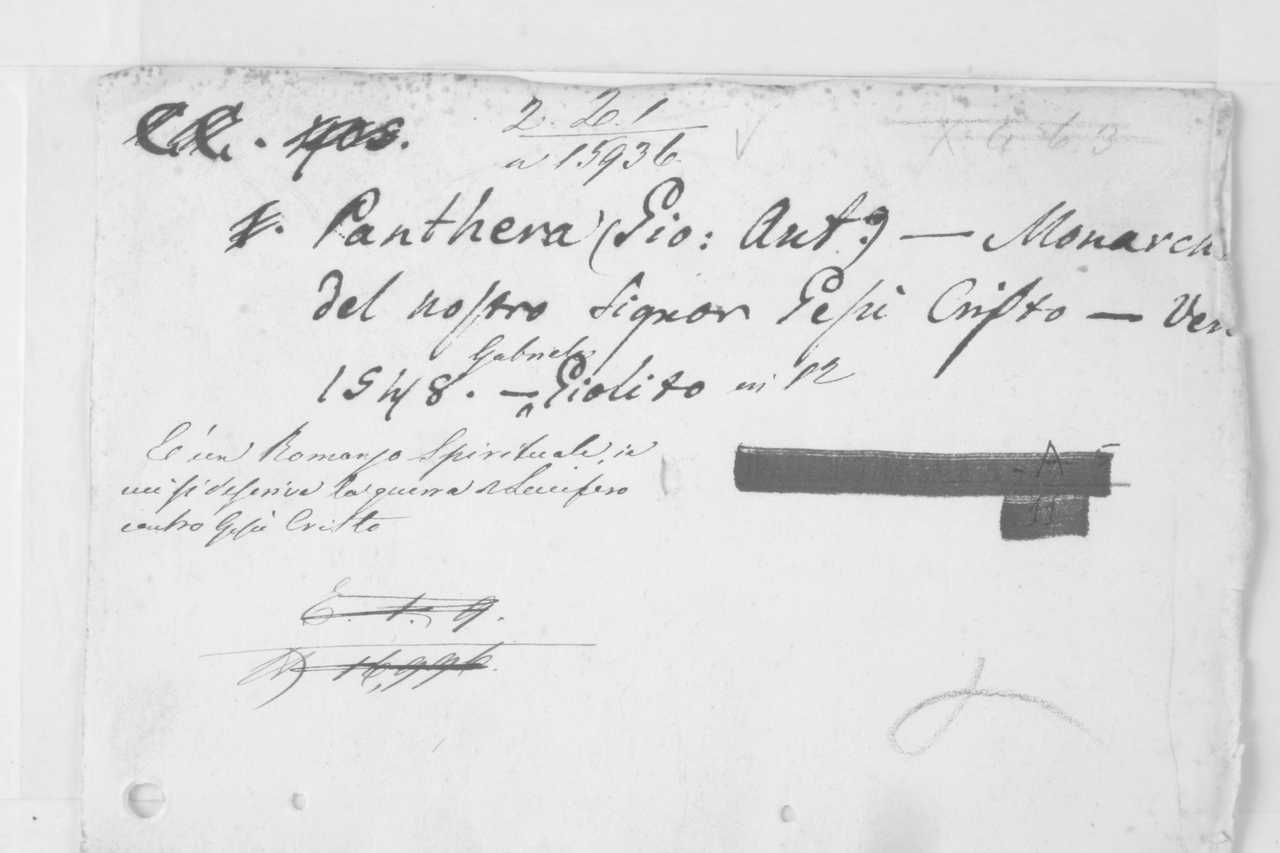 2. 26. 1
n 15936
X 9 63
Panthera (Gio: Ant.o) — Monarch
del nostro Signor Gesù Cristo — Ven
Gabriel
1548. — Giolito in 12
È un Romanzo Spirituale in
cui si descrive la guerra di Lucifero
contro Gesù Cristo
E. 1. 9.
16,996.